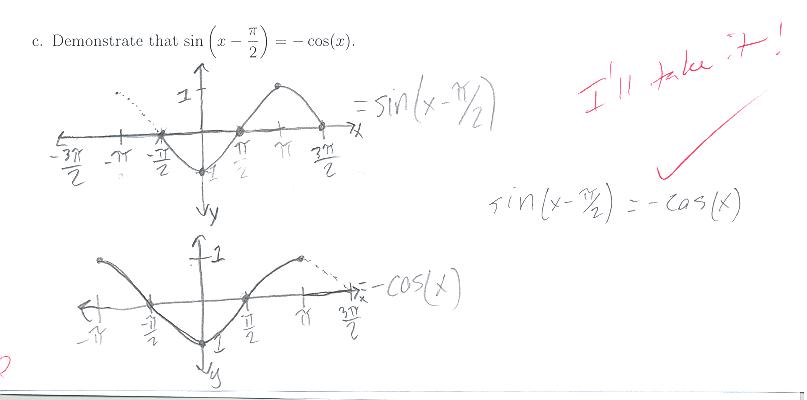 c. Demonstrate that sin (x − π/2) = − cos(x).
I'll take it!
1
= sin(x-π/2)
x
-3π/2 -π -π/2 π/2 π 3π/2
1
y
sin(x-π/2) = -cos(x)
1
= -cos(x)
x
-π -π/2 π/2 π 3π/2
1
y